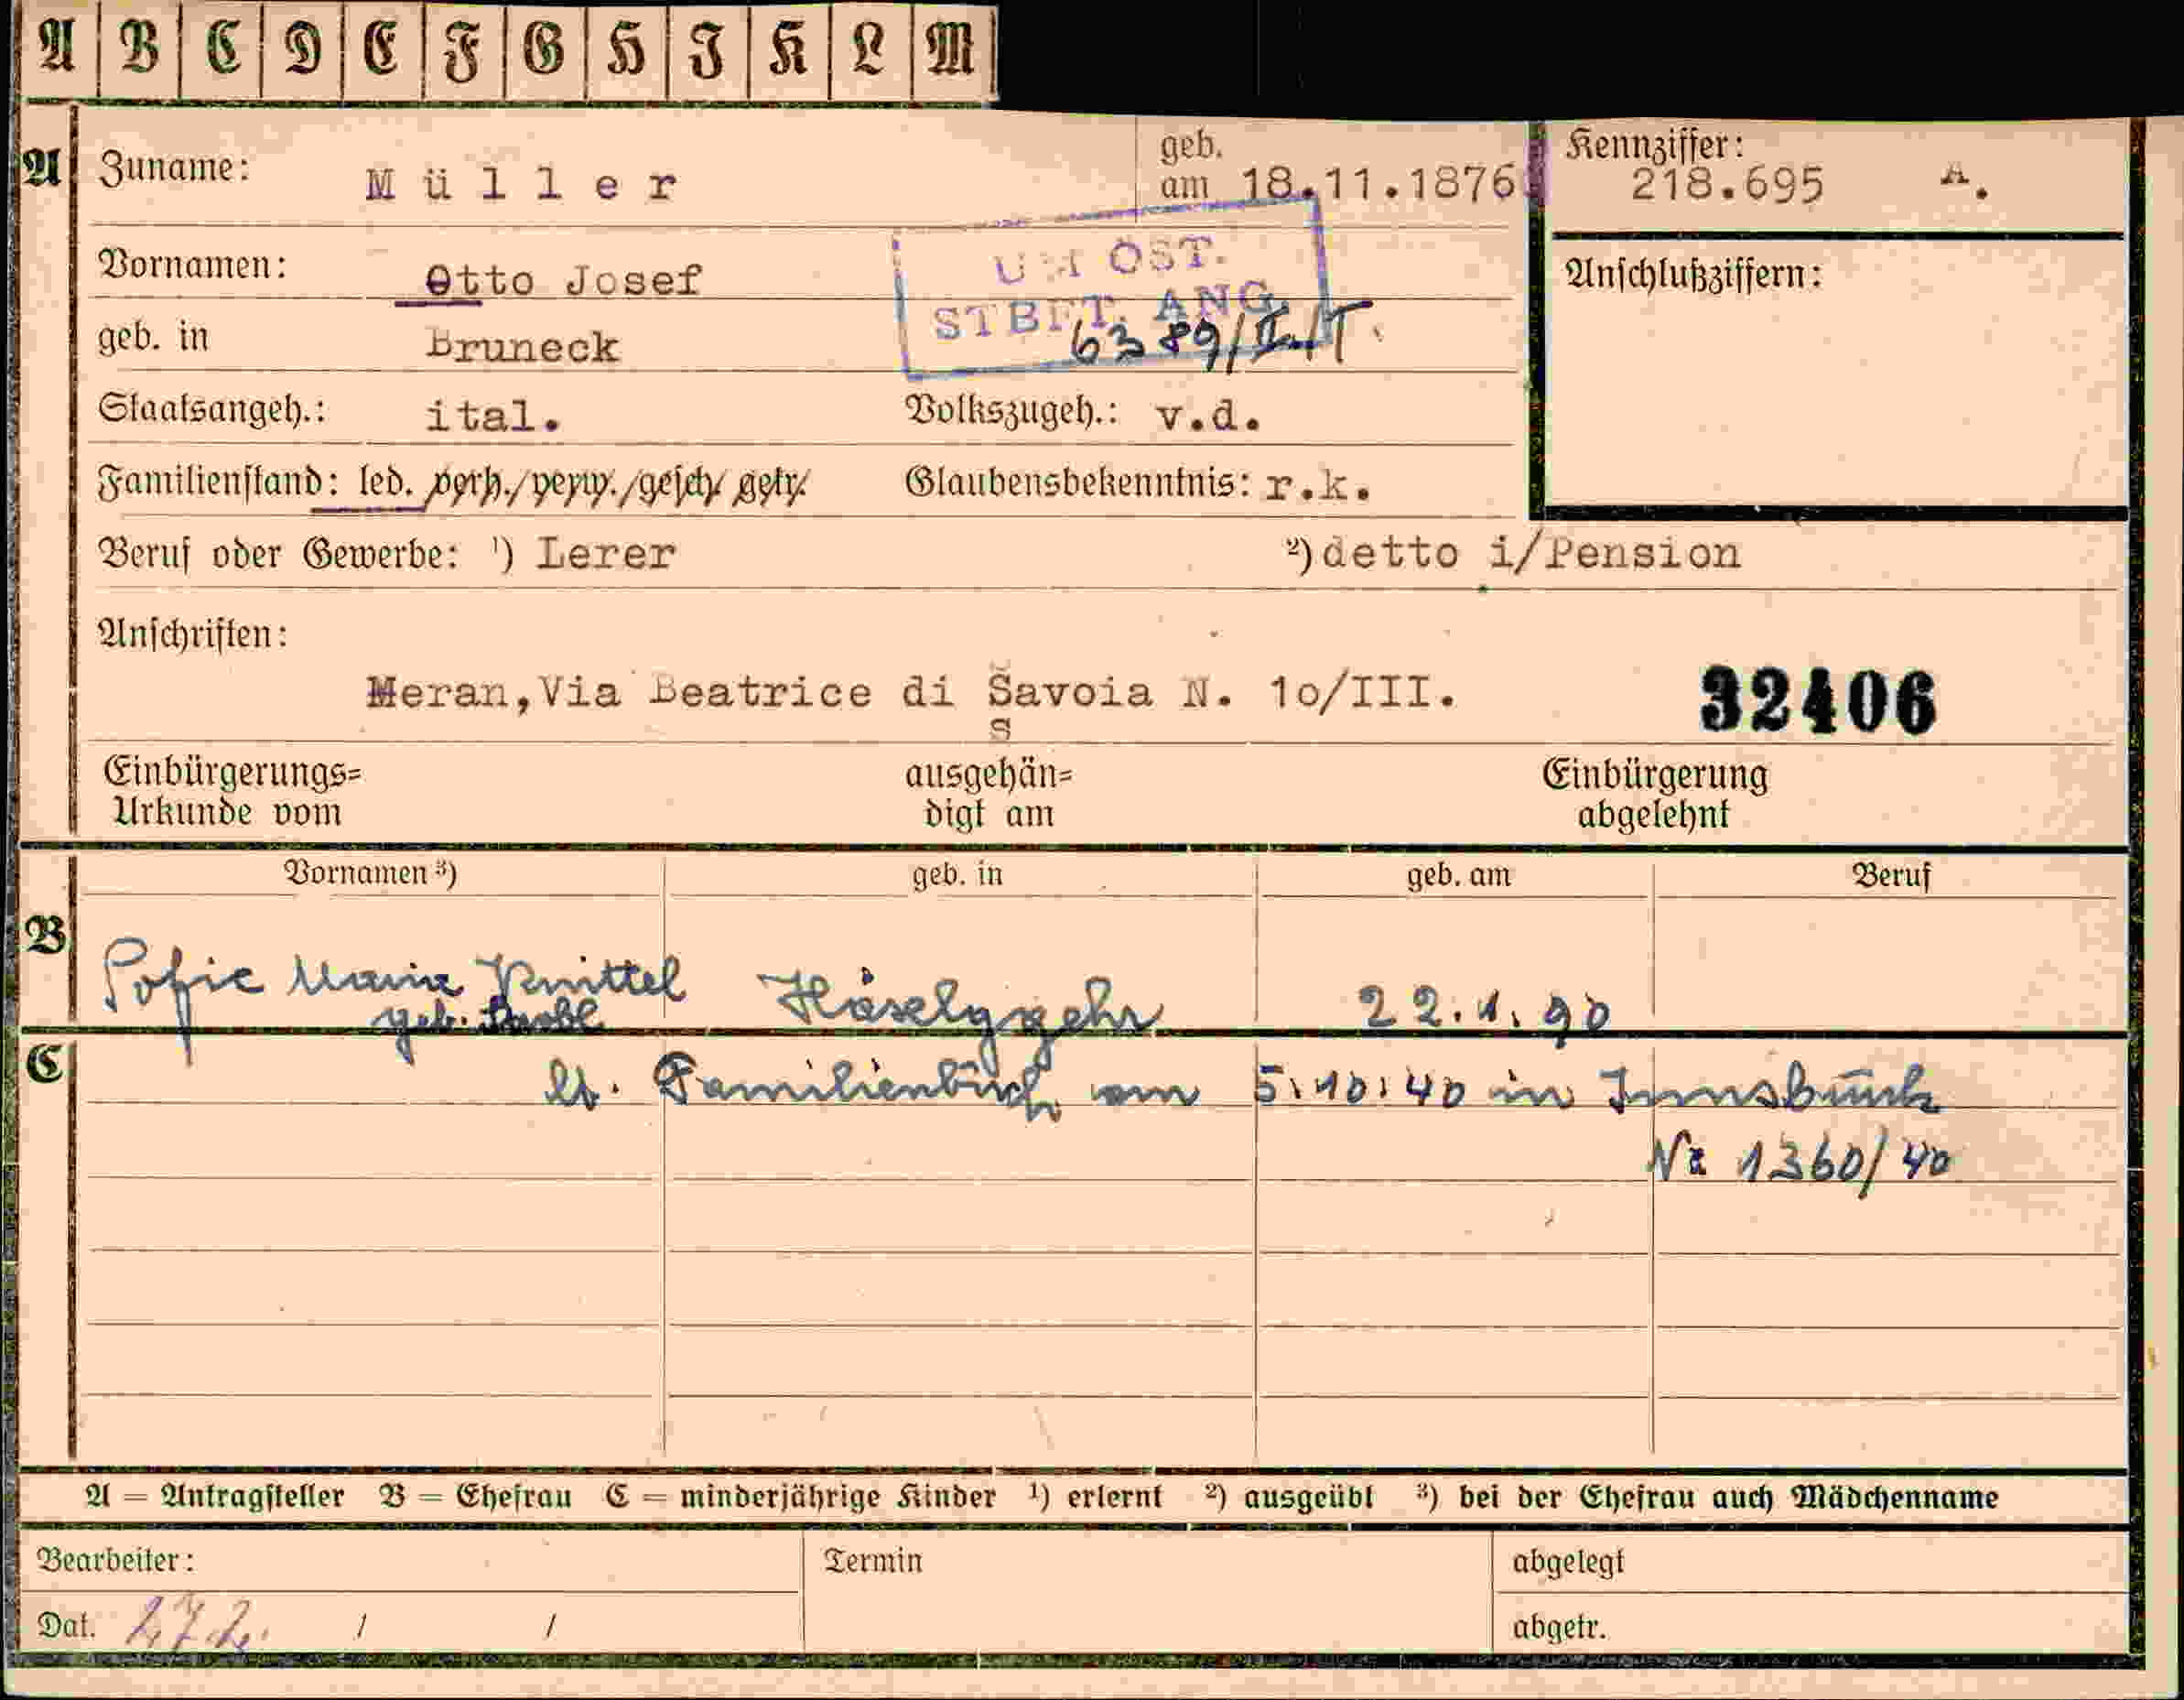 A B C D E F G H I K L M
A Zuname: Müller geb. am 18.11.1876 Kennziffer: 218.695 A.
Vornamen: Otto Josef UM OST. Anschlußziffern:
STBFT. ANG.
geb. in Bruneck 6389/II/T
Staatsangeh.: ital. Volkszugeh.: v.d.
Familienstand: led. verh./verw./gesch/ getr. Glaubensbekenntnis: r.k.
Beruf oder Gewerbe: ¹) Lerer ²) detto i/Pension
Anschriften:
Meran,Via Beatrice di Savoia N. 1o/III. 32406
S
Einbürgerungs= ausgehän= Einbürgerung
Urkunde vom digt am abgelehnt
Vornamen ³) geb. in geb. am Beruf
B
Sofie Maria Knittel Häselgehr 22.1.90
geb.
C
lt. Familienbuch am 5.10.40 in Innsbruck
Nr 1360/40
A = Antragsteller B = Ehefrau C = minderjährige Kinder ¹) erlernt ²) ausgeübt ³) bei der Ehefrau auch Mädchenname
Bearbeiter: Termin abgelegt
Dat. 27.2. / / abgetr.